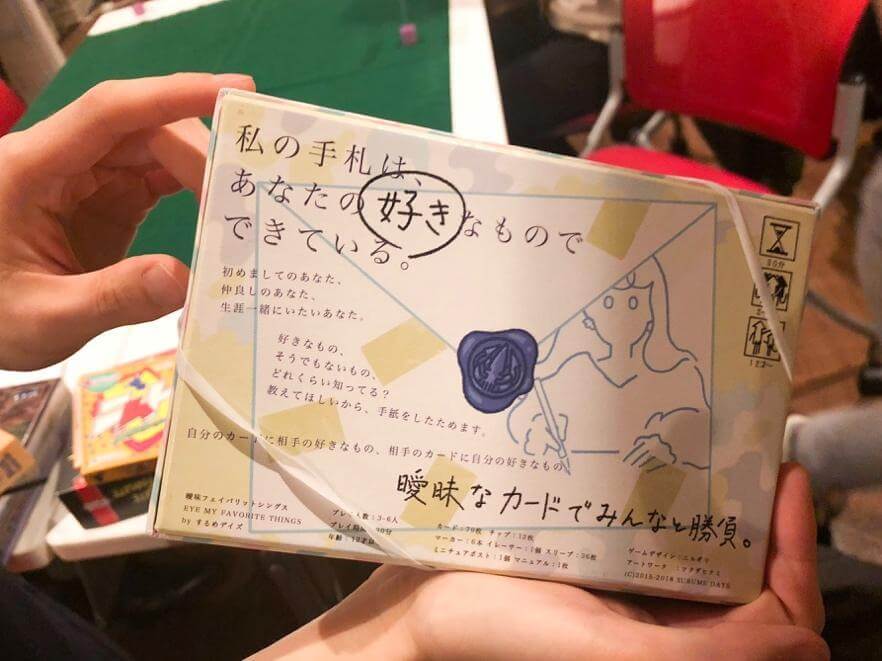 私の手札は、
あなたの好きなもので
できている。
初めましてのあなた、
仲良しのあなた、
生涯一緒にいたいあなた。
好きなもの、
そうでもないもの、
どれくらい知ってる?
教えてほしいから、手紙をしたためます。
自分のカードに相手の好きなもの、相手のカードに自分の好きなもの
曖昧なカードでみんなと勝負。
曖昧フェイバリットシングス
EYE MY FAVORITE THINGS
by するめデイズ
プレイ人数:3-6人
プレイ時間:30分
年齢:12才以
カード:70枚 チップ:12枚
マーカー:6本 イレーサー:1個 スリーブ:36枚
ミニチュアポスト:1個 マニュアル:1枚
ゲームデザイン:ニルギリ
アートワーク :フクダヒナミ
(C)2015-2018 SURUME DAYS
30分